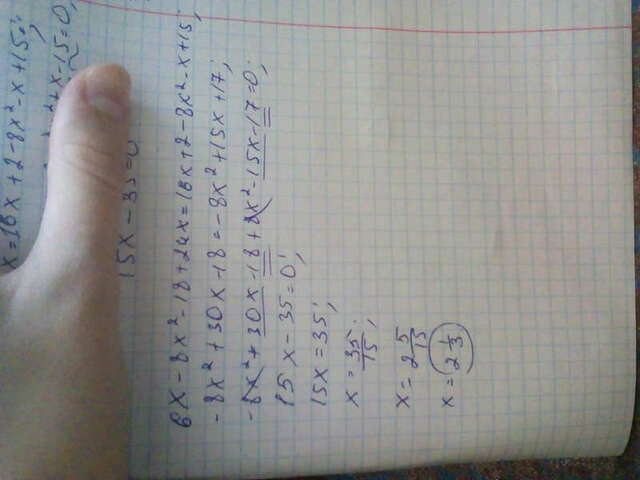 x=16x+2-8x²-x+15;
x-15=0,
15x-35=0
6x-8x²-18+24x=16x+2-8x²-x+15;
-8x²+30x-18=-8x²+15x+17;
-8x²+30x-18+8x²-15x-17=0;
15x-35=0;
15x=35;
x=35/15;
x=2 5/15
x=2 1/3